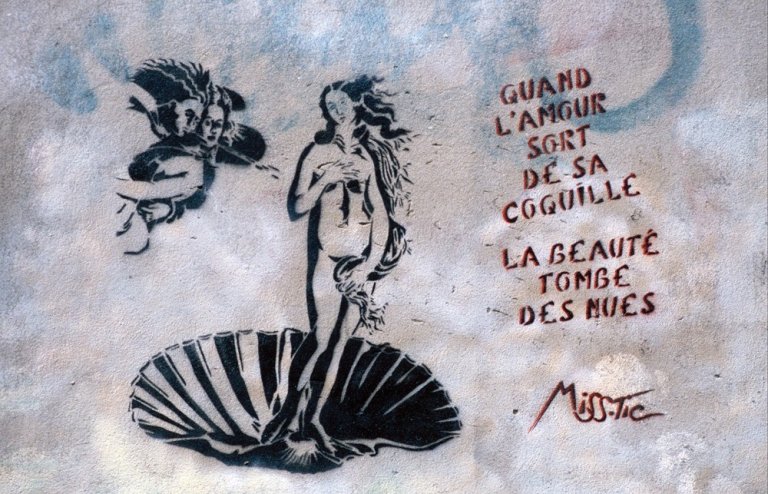 QUAND
L'AMOUR
SORT
DE SA
COQUILLE
LA BEAUTÉ
TOMBE
DES NUES
Miss.Tic